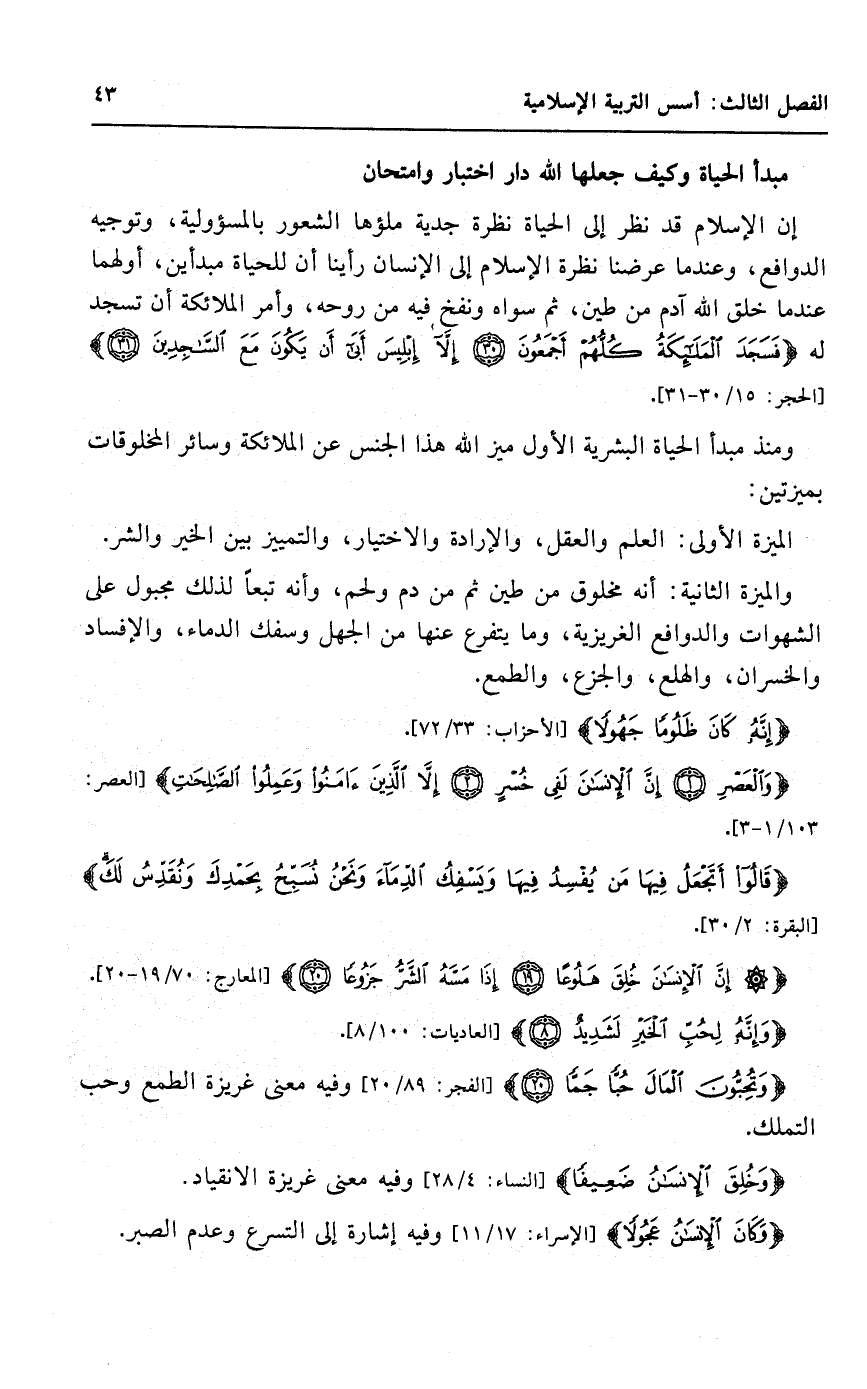 الفصل الثالث: أسس التربية الإسلامية ٤٣
مبدأ الحياة وكيف جعلها الله دار اختبار وامتحان
إن الإسلام قد نظر إلى الحياة نظرة جدية ملؤها الشعور بالمسؤولية، وتوجيه
الدوافع، وعندما عرضنا نظرة الإسلام إلى الإنسان رأينا أن للحياة مبدأين، أولهما
عندما خلق الله آدم من طين، ثم سواه ونفخ فيه من روحه، وأمر الملائكة أن تسجد
له ﴿فَسَجَدَ ٱلْمَلَـٰٓئِكَةُ كُلُّهُمْ أَجْمَعُونَ ۝٣٠ إِلَّآ إِبْلِيسَ أَبَىٰٓ أَن يَكُونَ مَعَ ٱلسَّـٰجِدِينَ ۝٣١﴾
[الحجر: ١٥/ ٣٠-٣١].
ومنذ مبدأ الحياة البشرية الأول ميز الله هذا الجنس عن الملائكة وسائر المخلوقات
بميزتين:
الميزة الأولى: العلم والعقل، والإرادة والاختيار، والتمييز بين الخير والشر.
والميزة الثانية: أنه مخلوق من طين ثم من دم ولحم، وأنه تبعاً لذلك مجبول على
الشهوات والدوافع الغريزية، وما يتفرع عنها من الجهل وسفك الدماء، والإفساد
والخسران، والهلع، والجزع، والطمع.
﴿إِنَّهُۥ كَانَ ظَلُومًا جَهُولًا﴾ [الأحزاب: ٣٣/ ٧٢].
﴿وَٱلْعَصْرِ ۝١ إِنَّ ٱلْإِنسَـٰنَ لَفِى خُسْرٍ ۝٢ إِلَّا ٱلَّذِينَ ءَامَنُوا۟ وَعَمِلُوا۟ ٱلصَّـٰلِحَـٰتِ﴾ [العصر:
١٠٣/ ١-٣].
﴿قَالُوٓا۟ أَتَجْعَلُ فِيهَا مَن يُفْسِدُ فِيهَا وَيَسْفِكُ ٱلدِّمَآءَ وَنَحْنُ نُسَبِّحُ بِحَمْدِكَ وَنُقَدِّسُ لَكَ ۖ﴾
[البقرة: ٢/ ٣٠].
﴿۞ إِنَّ ٱلْإِنسَـٰنَ خُلِقَ هَلُوعًا ۝١٩ إِذَا مَسَّهُ ٱلشَّرُّ جَزُوعًا ۝٢٠﴾ [المعارج: ٧٠/ ١٩-٢٠].
﴿وَإِنَّهُۥ لِحُبِّ ٱلْخَيْرِ لَشَدِيدٌ ۝٨﴾ [العاديات: ١٠٠/ ٨].
﴿وَتُحِبُّونَ ٱلْمَالَ حُبًّا جَمًّا ۝٢٠﴾ [الفجر: ٨٩/ ٢٠] وفيه معنى غريزة الطمع وحب
التملك.
﴿وَخُلِقَ ٱلْإِنسَـٰنُ ضَعِيفًا﴾ [النساء: ٤/ ٢٨] وفيه معنى غريزة الانقياد.
﴿وَكَانَ ٱلْإِنسَـٰنُ عَجُولًا﴾ [الإسراء: ١٧/ ١١] وفيه إشارة إلى التسرع وعدم الصبر.